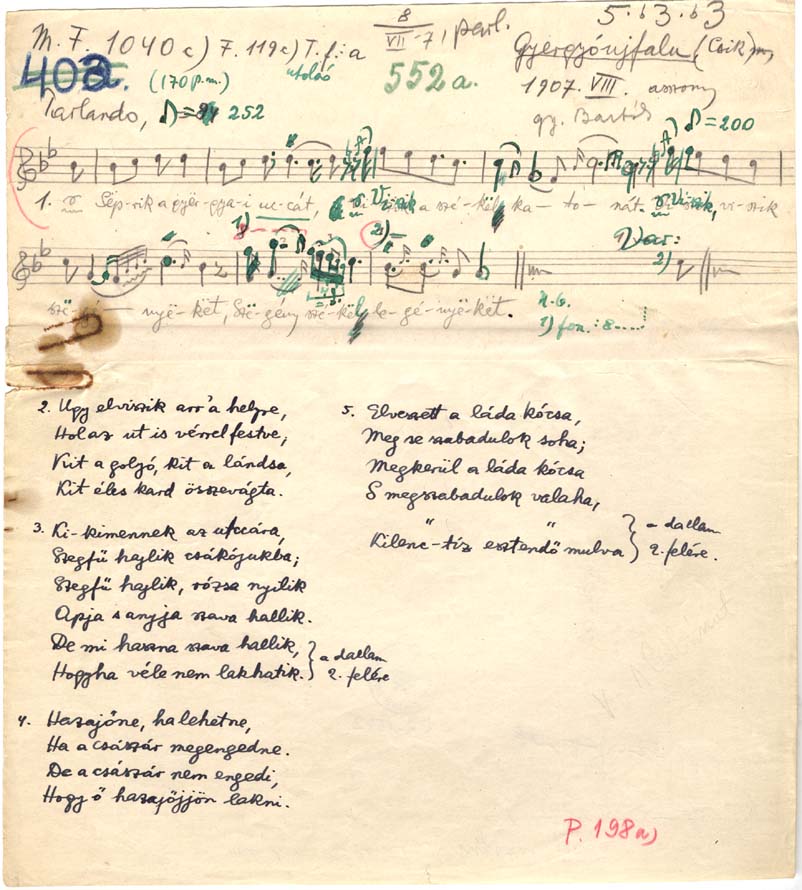 8
VII -7, parl.
5 b3 b3
M. F. 1040 c) F. 119c) T. f: a
Gyergyóujfalu, (Csik) m,
utolsó
403a.
(170 p.m.)
552a.
1907. VIII. asszony
gy. Bartók
Parlando, ♪= 252
♪=200
1. Sëp-rik a gyër-gya-i uc-cát, Viszik a szé-këly ka-to-nát. Viszik, vi-szik
1) 8
2)
Var:
2)
szë-gé- nyë-kët, Szë-gény szé-këly le-gé-nyë-kët.
N.b.
1) fon.: 8.....
2. Ugy elviszik arr'a helyre,
Hol az ut is vérrel festve,
Kit a goljó, kit a lándsa,
Kit éles kard összevágta.
3. Ki-kimennek az utccára,
Szegfű hajlik csákójukba;
Szegfű hajlik, rózsa nyilik
Apja s anyja szava hallik.
De mi haszna szava hallik,
Hogyha véle nem lakhatik.
} a dallam
2. felére
4. Hazajőne, ha lehetne,
Ha a császár megengedne.
De a császár nem engedi,
Hogy ő hazajőjjön lakni.
5. Elveszett a láda kócsa,
Meg se szabadulok soha;
Megkerül a láda kócsa
S megszabadulok valaha,
" "
Kilenc-tíz esztendő mulva
} a dallam
2. felére.
P. 198a)